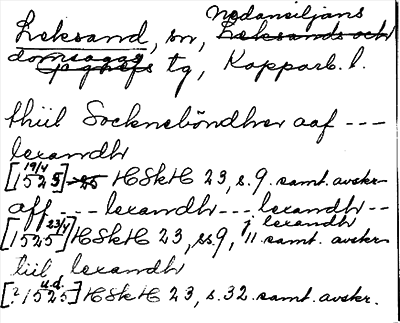 Nedansiljans
Leksand, sn, Leksands och
domsagas tg, Kopparb. l.
thiil Sockneböndher aaf ---
lexandh
[19/4 1525] HSkH 23, s. 9. samt. avskr.
aff --- lexandh --- lexandh ---
lexandh
[23/4 1525] HSkH 23, ss 9, 11. samt. avskr.
tiil lexandh
[? u.d. 1525] HSkH 23, s. 32. samt. avskr.